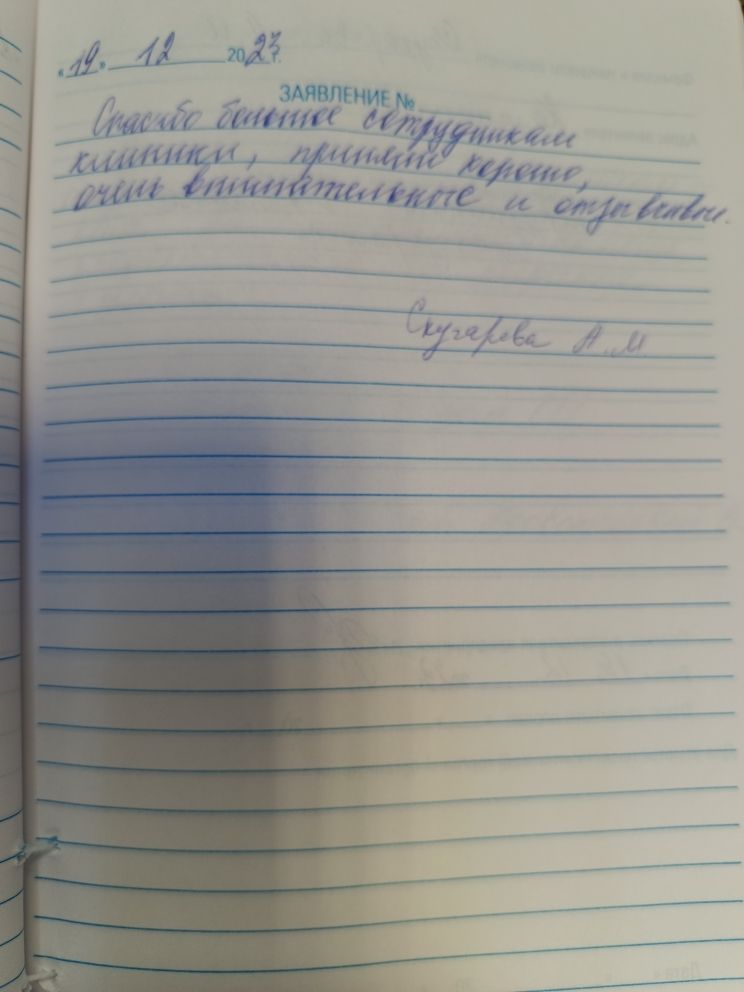 «19» 12 2023 г.
ЗАЯВЛЕНИЕ №
Спасибо большое сотрудникам
клиники, приняли хорошо,
очень внимательные и отзывчивые.
Скугарева А.М.